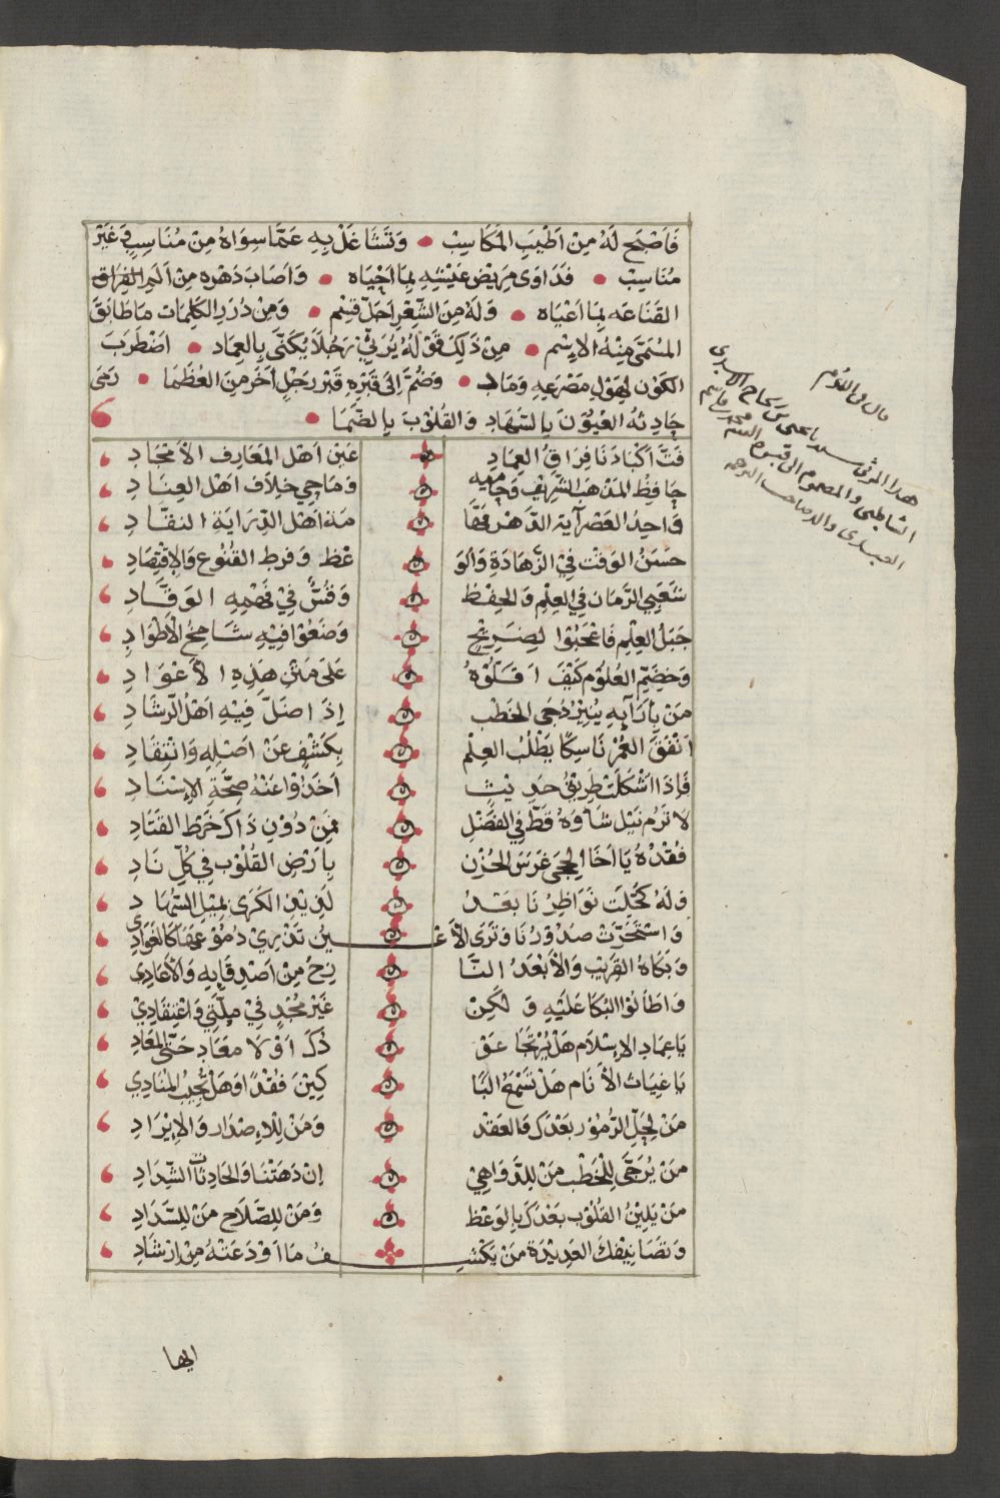 فَاَصْبَحَ لَهُ مِنْ اَطْيَبِ المَكَاسِبْ • وَتَشَاغَلَ بِهِ عَمَّا سِوَاهُ مِنْ مُنَاسِبٍ وَغَيْرَ
مُنَاسِبْ • فَدَاوَى مَرِيْضَ عَيْشِهِ بِمَا اَحْيَاه • وَاَصَابَ دَهْرَهُ مِنْ اَلَمِ الفِرَاقِ
القَنَاعَه بِمَا اَعْيَاه • وَلَهُ مِنَ الشِّعْرِ اَجَلَّ قِسْم • وَمِنْ دُرَرِ الكَلِمَات مَا طَابَقَ
المُسَمَّى مِنْهُ الاِسْم • مِنْ ذَلِكَ قَوْلُهُ يَرْثِيْ رَجُلاً يُكَنَّى بِالعِمَاد • اضْطَرَبَ
الكَوْن لِهَوْلِ مَصْرَعِهِ وَمَاد • وَضُمَّ اِلَى قَبْرِهِ قَبْر رَجُلٍ اَخَرَ مِنَ العُظَمَا • رَمَى
حَادِثُهُ العُيُوْنَ بِالسُّهَادِ وَالقُلُوْبَ بِالضَّمَا •
فَتَّ اَكْبَادَنَا فِرَاقُ العِمَادِ عَيْن اَهْل المَعَارِف الاَمْجَادِ
حَافِظُ المَذْهَب الشَّرِيْف وَحَامِيْه وَمَاحِي خِلَاف اَهْل العِنَادِ
وَاحِدُ العَصْر آيَة الدَّهْر مَةُ اَهْل الدِّرَايَة النقَّادِ
حَسَنُ الوَقْت فِيْ الزَّهَادَةِ وَالوَ عْظ وَفَرط القُنُوْع وَالاِقْتِصَادِ
شَعَبِي الزَّمَان فِي العِلْمِ وَالحِفْظ وَقُسٌّ فِيْ فَهْمِهِ الوَقَّادِ
جَبَلُ العِلْمِ فَاعْجَبُوْا لِضَرِيْحٍ وَضَعُوْا فِيْهِ شَامِخُ الاَطْوَادِ
وَخِضَمّ العُلُوْم كَيْفَ اَقَلُّوْهُ عَلَى مَتْنِ هَذِهِ الاَعْوَادِ
مَنْ بِأَرَآيِهِ يُنِيْرُ دُجَى الخَطْب اِذَا ضَلَّ فِيْهِ اَهْلُ الرَّشَادِ
اَنْفَقَ العُمْرَ نَاسِكًا يَطْلُبُ العِلْم بِكَشْفٍ عَنْ اَصْلِهِ وَانْتِقَادِ
فَاِذَا اَشْكَلَتْ طَرِيْقُ حَدِيْثٍ اَخَذُوْا عَنْهُ صِحَّةِ الاِسْنَادِ
لَا تَرُمْ نَيْل شَأوهُ قَطّ فِي الفَضْلِ فَمِنْ دُوْنِ ذَاكَ خَرْط القَتَادِ
فَقْدُهُ يَا اَخَا الحِجَى غَرَسَ الحُزْن بِاَرْضِ القُلُوْب فِي كُلِّ نَادِ
وَلَهُ كُحِّلَت نَوَاظِرُنَا بَعْدَ لَذِيْذِ الكَرَى بِمِيْلِ السُّهَادِ
وَاسْتَحَرَّت صُدُوْرُنَا وَتَرَى الاَعْـ ـيُنَ تَذْرِيْ دُمُوْعَهَا كَالغَوَادِي
وَبَكَاهُ القَرِيْب وَالاَبْعَدُ النَّا زِحُ مِنْ اَصْدِقَايِهِ وَالاَعَادِي
وَاَطَالُوْا البُكَا عَلَيْهِ وَلَكِنْ غَيْرُ مُجْدٍ فِيْ مِلَّتِيْ وَاعْتِقَادِيْ
يَا عِمَادِ الاِسْلَام هَلْ يُرْتَجَا عَوْ دُكَ اَوْ لَا مَعَاد حَتَّى المَعَادِ
يَا غِيَاثَ الاَنَام هَلْ تَسْمَعُ البَا كِيْنَ فَقْدًا وَهَل تُجِيْبُ المُنَادِي
مَنْ لِحَلِّ الرُّمُوْز بَعْدَكَ وَالعَقْد وَمَنْ لِلاِصْدَار وَالاِيْرَادِ
مَنْ يُرَجَّى لِلْخَطْب مَنْ لِلدَّوَاهِيْ اِنْ دَهَتْنَا وَالحَادِثَات الشِّدَادِ
مَنْ يُلِيْنُ القُلُوْب بَعْدَكَ بِالوَعْظ وَمَنْ لِلصَّلَاح مَنْ لِلسَّدَادِ
وَتَصَانِيْفُكَ العَدِيْدَة مَنْ يَكْشِـ ـفُ مَا اَوْدَعَتْهُ مِنْ اِرْشَادِ
ايها
هذا المرثي